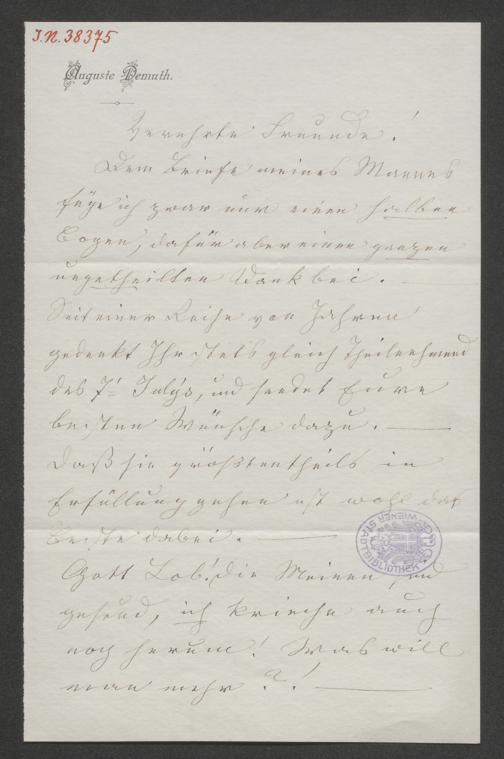 I.N. 38375
Auguste Demuth.
Verehrte Freunde!
Dem Briefe meines Mannes
füge ich zwar nur einen halben
Bogen, dafür aber einen ganzen
ungetheilten Dank bei. —
Seit einer Reihe von Jahren
gedenkt Ihr stets gleich theilnehmend
des 7t July's, und sendet Eure
besten Wünsche dazu. —
Daß sie größtentheils in
Erfüllung gehen ist wohl das
Beste dabei. —
Gott Lob! die Meinen sind
gesund, ich krieche auch
noch herum! Was will
man mehr?! —
WIENER STADTBIBLIOTHEK